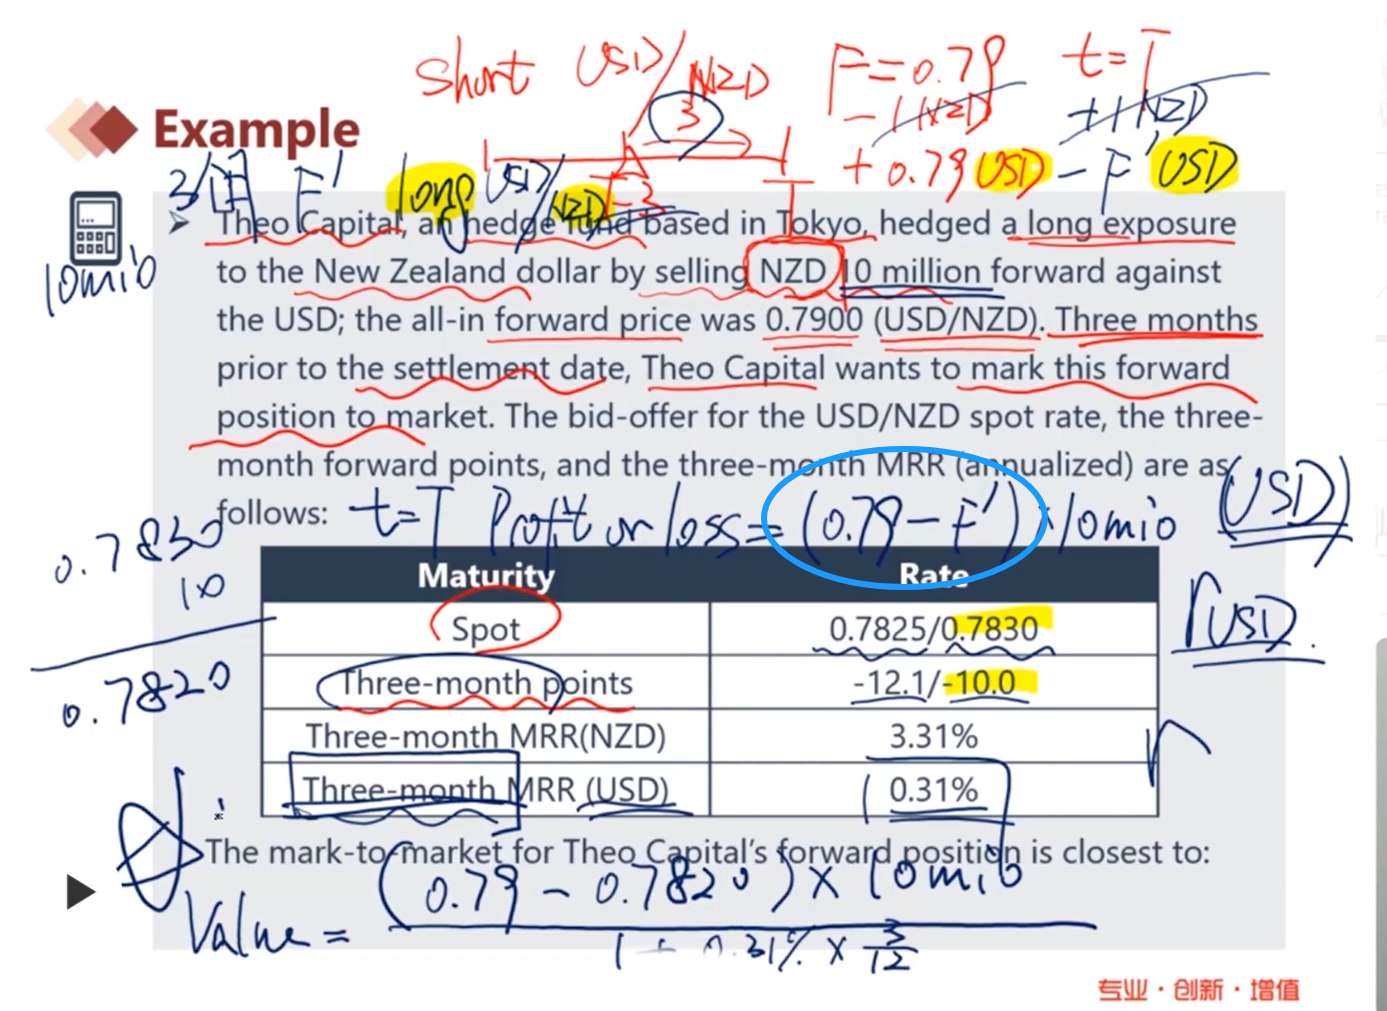 short USD/NZD F=0.79 t=T
3
-1NZD +1NZD
+0.79USD -F'USD
Example
3个月 F' long USD/NZD
t=3 T
Theo Capital, an hedge fund based in Tokyo, hedged a long exposure
10mio to the New Zealand dollar by selling NZD 10 million forward against
the USD; the all-in forward price was 0.7900 (USD/NZD). Three months
prior to the settlement date, Theo Capital wants to mark this forward
position to market. The bid-offer for the USD/NZD spot rate, the three-
month forward points, and the three-month MRR (annualized) are as
follows: t=T Profit or loss=(0.79-F')×10mio (USD)
0.7830
10
0.7820
Maturity Rate
Spot 0.7825/0.7830
rUSD.
Three-month points -12.1/-10.0
Three-month MRR(NZD) 3.31%
Three-month MRR (USD) 0.31%
The mark-to-market for Theo Capital's forward position is closest to:
(0.79-0.7820)×10mio
Value=
1+0.31%×3/12
专业·创新·增值